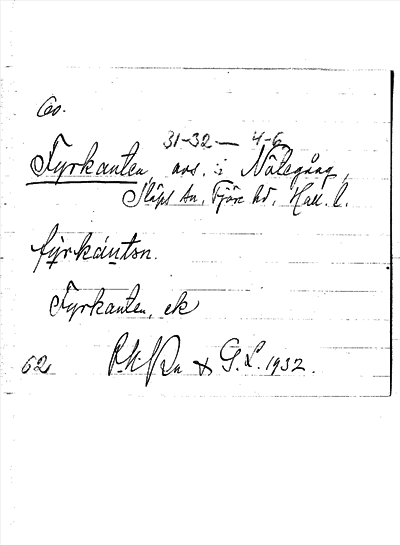 Co.
31-32 — 4-6
Fyrkanten, avs. i Nötegång,
Släps sn, Fjäre hd, Hall. l.
fy̡rkántən.
Fyrkanten, ek
62 & G. L. 1932.